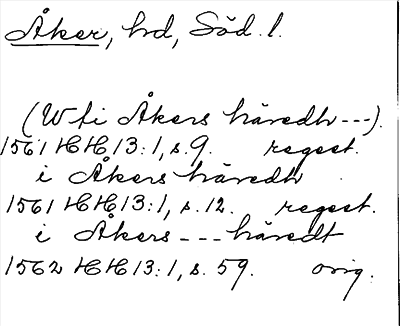 Åker, hd, Söd. l.
(Wti Åkers häredh ---).
1561 HH 13:1, s. 9. regest.
i Åkers häredh
1561 HH 13:1, s. 12. regest.
i Åkers --- häredt
1562 HH 13:1, s. 59. orig.